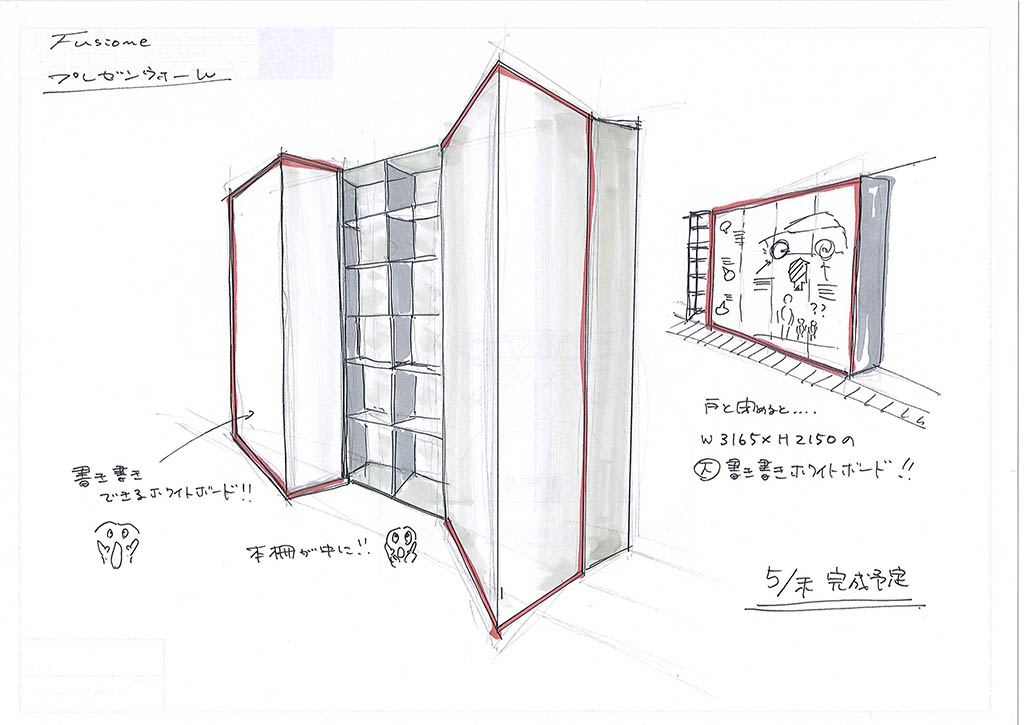 Fusione
プレゼンウォール
書き書き
できるホワイトボード!!
本棚が中に!!
??
戸を閉めると....
W3165×H2150の
大 書き書きホワイトボード!!
5/末 完成予定